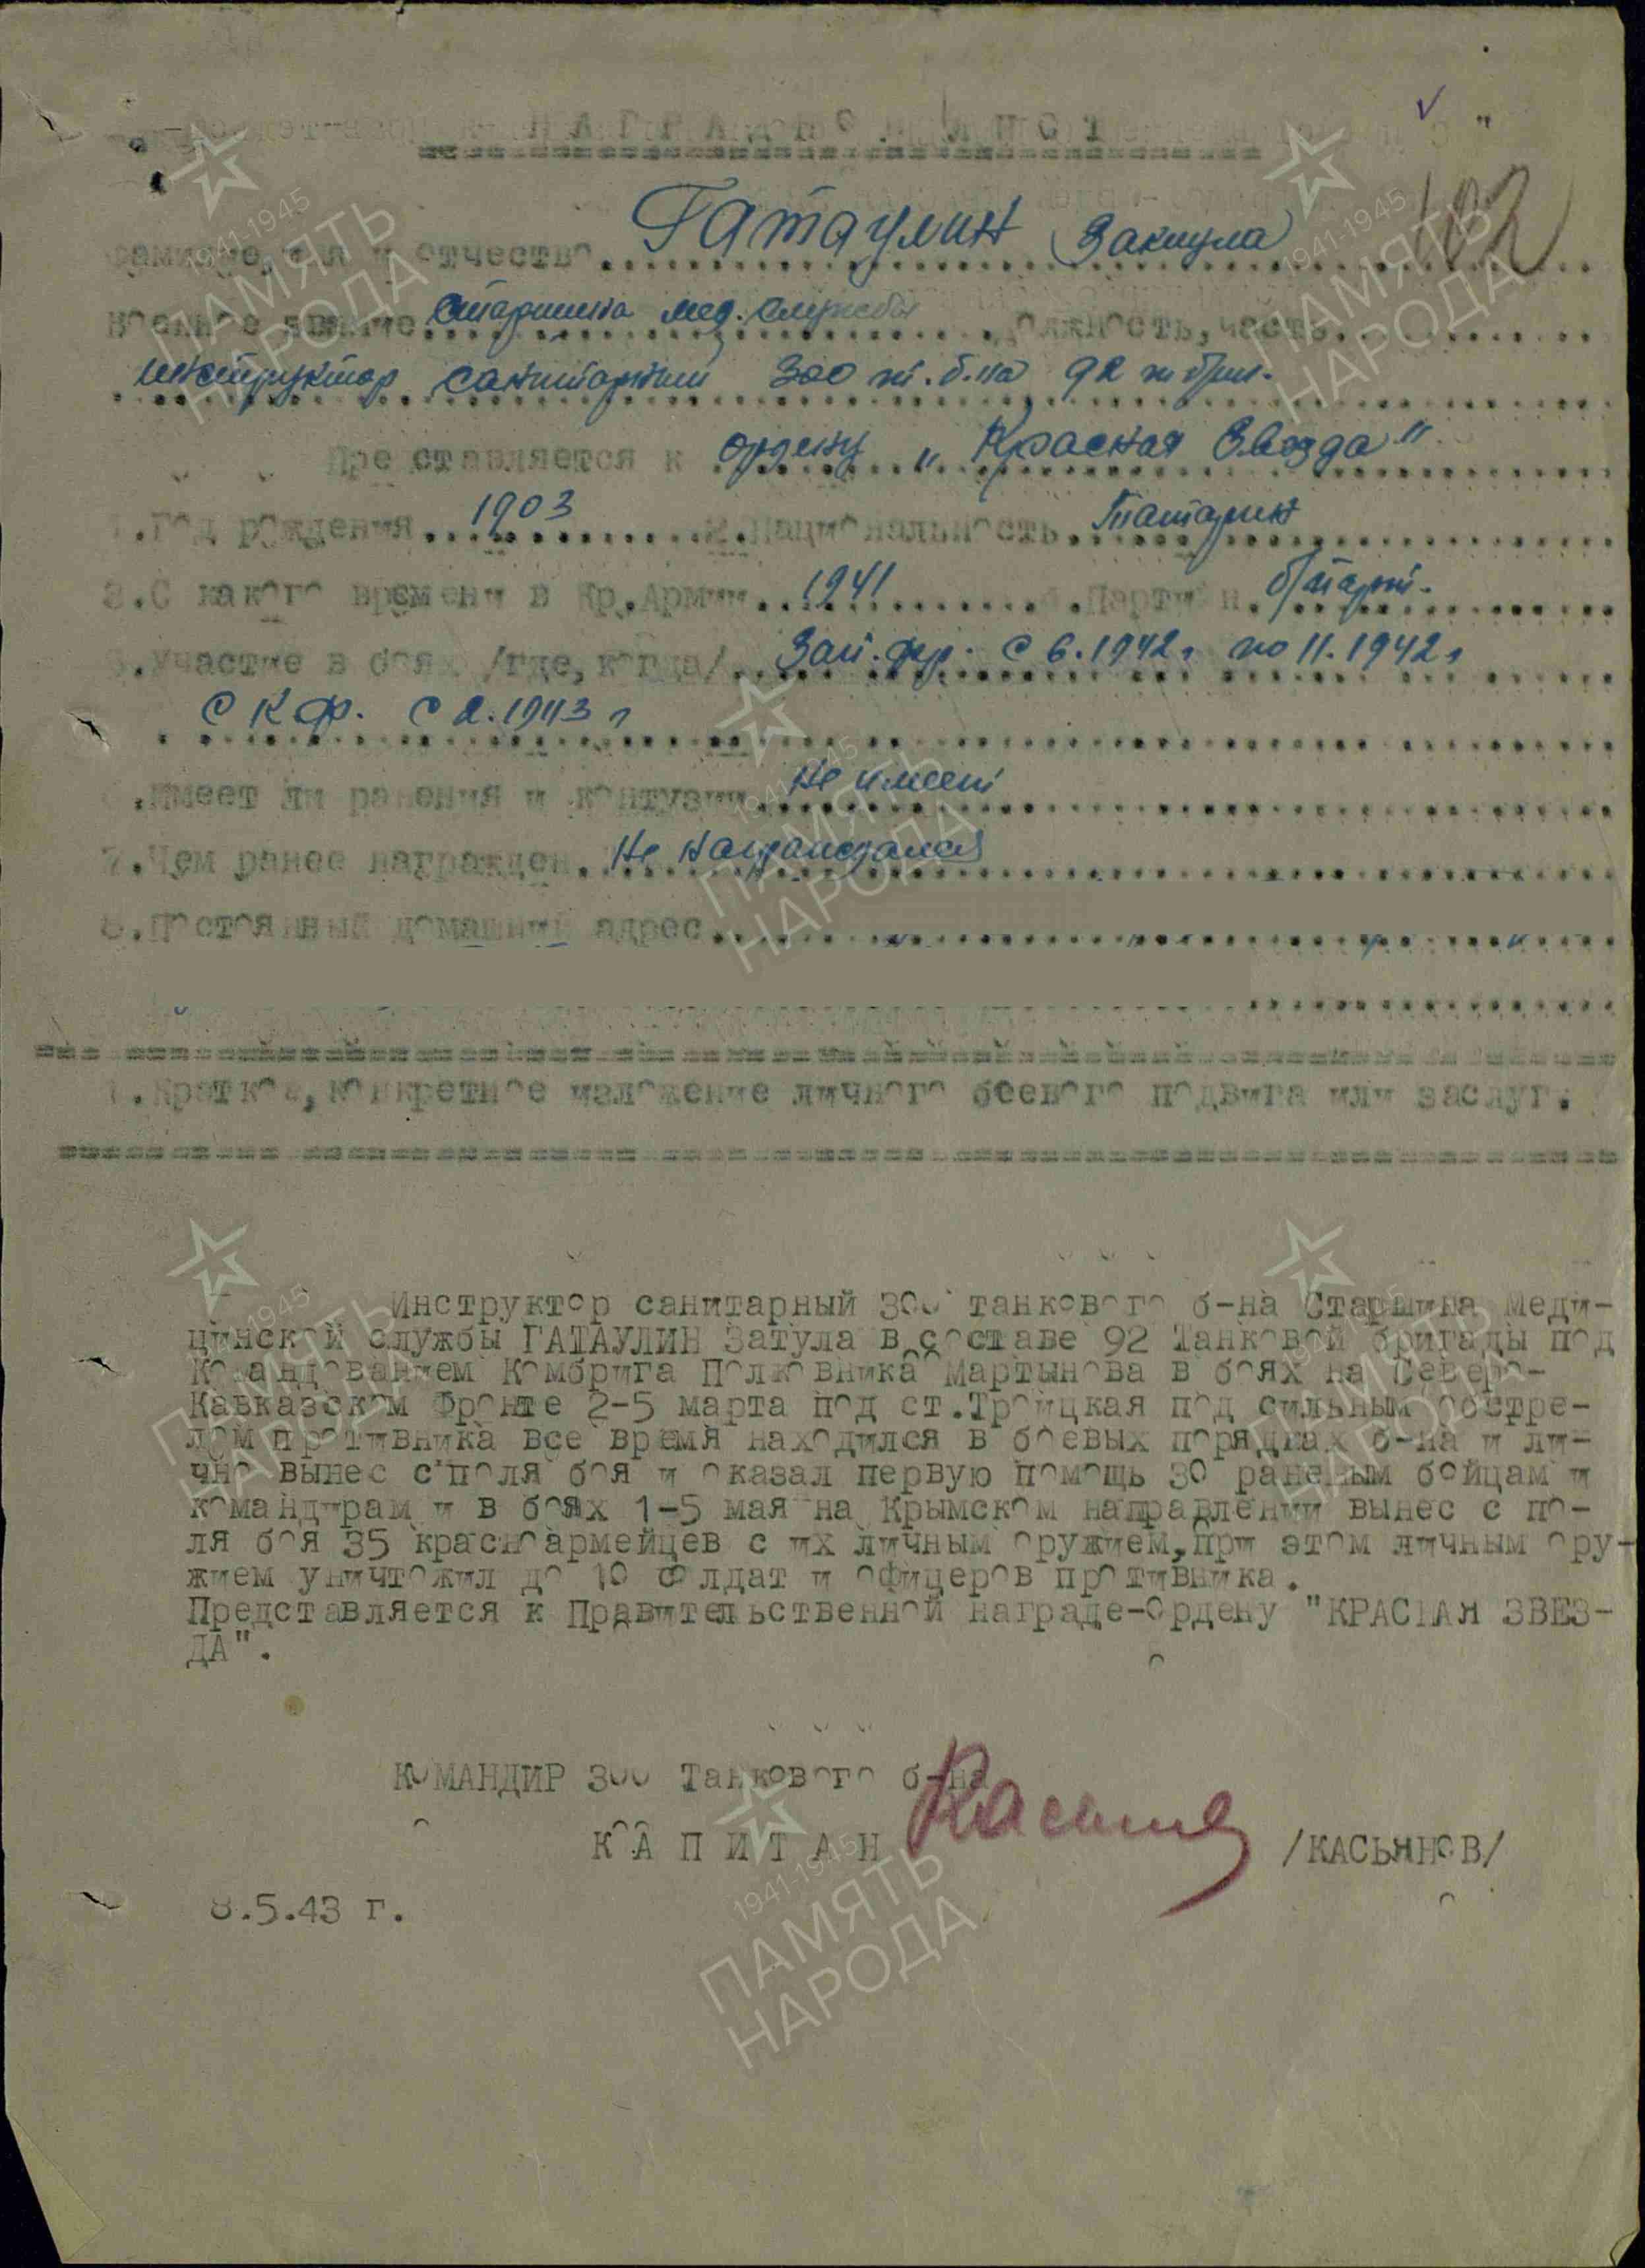 НАГРАДНОЙ ЛИСТ
102
Фамилие, имя и отчество Гатаулин Закиула
Военное звание старшина мед. службы должность, часть
инструктор санитарный 300 т. б-на 92 т бриг.
Представляется к ордену „Красная Звезда"
1.Год рождения 1903 2.Национальность Татарин
3.С какого времени в Кр.Армии 1941 4.Партийн. б/парт.
5.Участие в боях /где, когда/ Зап. фр. с 6.1942 г по 11.1942 г
С К Ф. с 2.1943 г
6.Имеет ли ранения и контузии не имеет
7.Чем ранее награжден. Не награждался
8.Постоянный домашний адрес
1.Краткое, конкретное изложение личного боевого подвига или заслуг.
Инструктор санитарный 300 танкового б-на Старшина Меди-
цинской службы ГАТАУЛИН Затула в составе 92 Танковой бригады под
Командованием Комбрига Полковника Мартынова в боях на Северо-
Кавказском Фронте 2-5 марта под ст.Троицкая под сильным обстре-
лом противника все время находился в боевых порядках б-на и ли-
чно вынес с поля боя и оказал первую помощь 30 раненым бойцам и
командирам и в боях 1-5 мая на Крымском направлении вынес с по-
ля боя 35 красноармейцев с их личным оружием, при этом личным ору-
жием уничтожил до 10 солдат и офицеров противника.
Представляется к Правительственной награде-Ордену "КРАСНАЯ ЗВЕЗ-
ДА".
КОМАНДИР 300 Танкового б-на
КАПИТАН /КАСЬЯНОВ/
8.5.43 г.
1941-1945
ПАМЯТЬ
НАРОДА
1941-1945
ПАМЯТЬ
НАРОДА
1941-1945
ПАМЯТЬ
НАРОДА
1941-1945
ПАМЯТЬ
НАРОДА
1941-1945
ПАМЯТЬ
НАРОДА
1941-1945
ПАМЯТЬ
НАРОДА